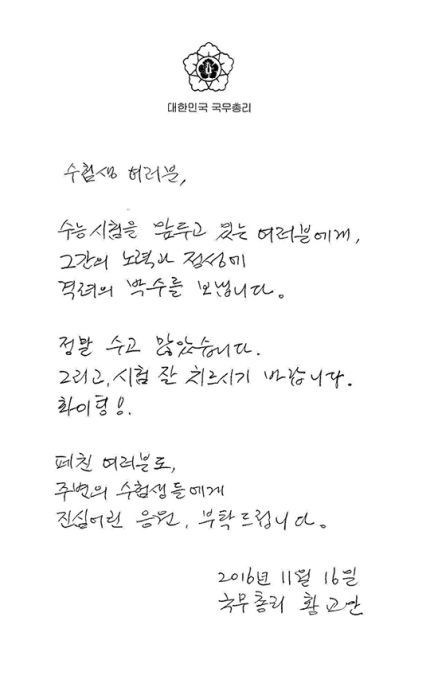 대한민국 국무총리
수험생 여러분,
수능시험을 앞두고 있는 여러분에게,
그간의 노력과 정성에
격려의 박수를 보냅니다.
정말 수고 많았습니다.
그리고, 시험 잘 치르시기 바랍니다.
화이팅!.
페친 여러분도,
주변의 수험생들에게
진심어린 응원, 부탁드립니다.
2016년 11월 16일
국무총리 황교안